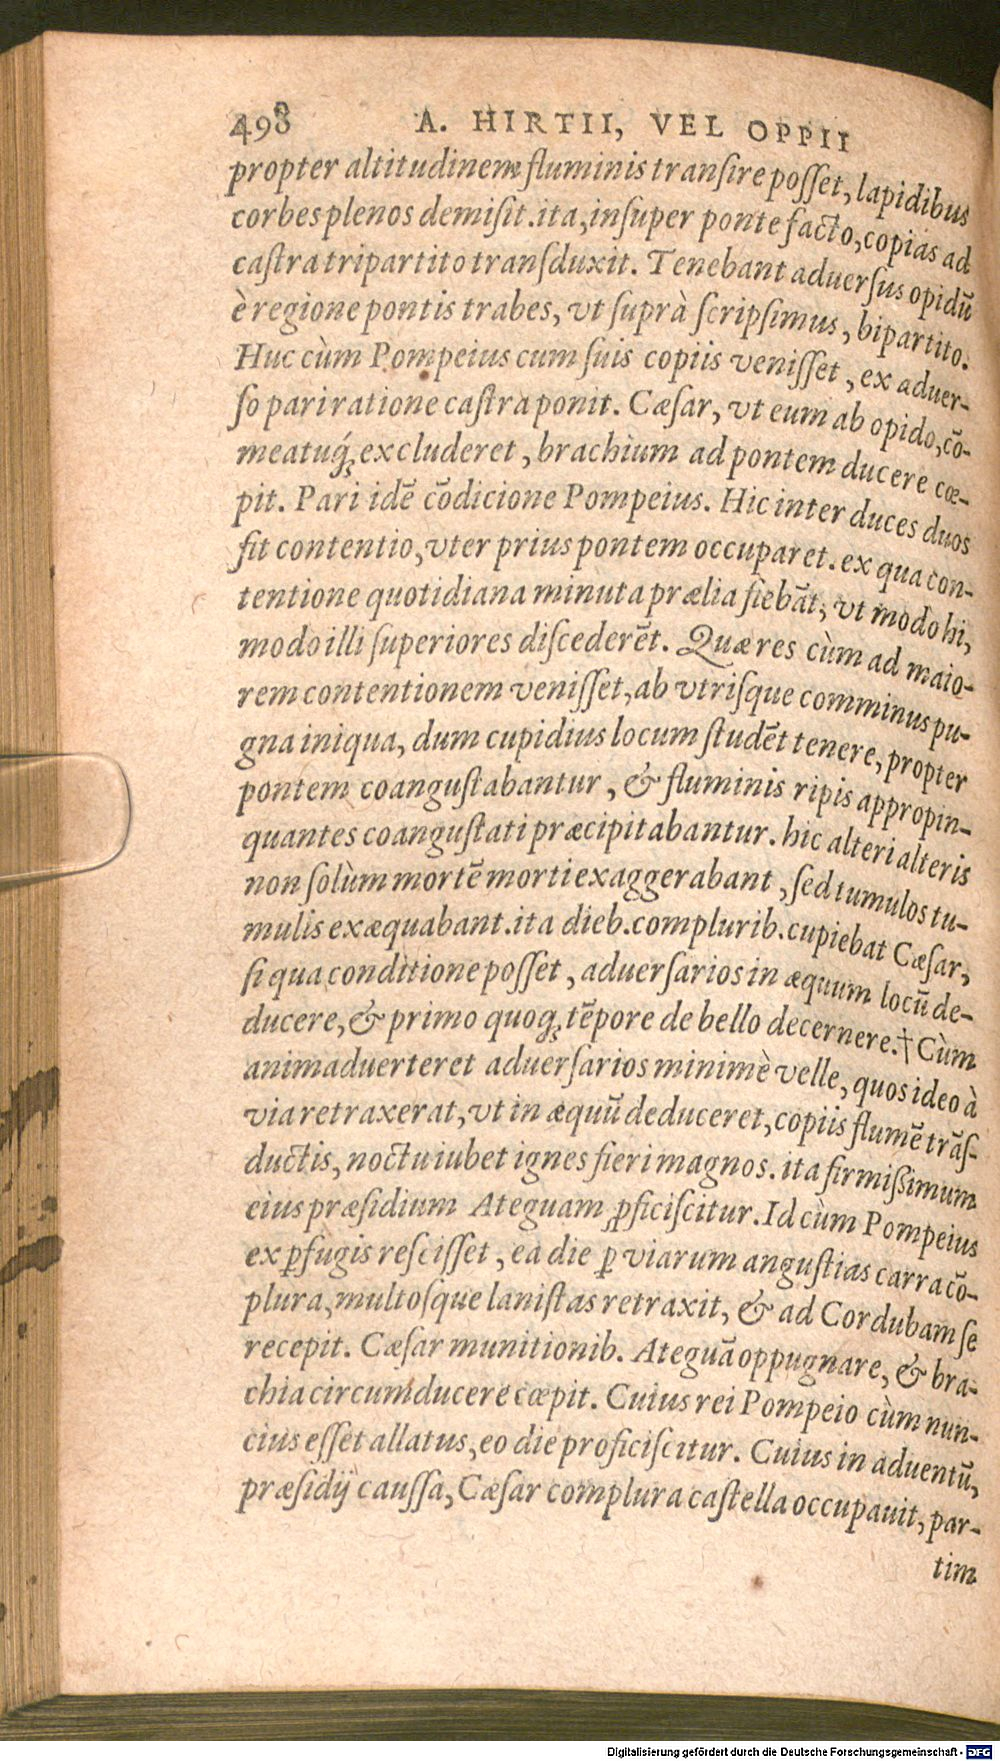 498 A. HIRTII, VEL OPPII
propter altitudinem fluminis transire posset, lapidibus
corbes plenos demisit. ita, insuper ponte facto, copias ad
castra tripartito transduxit. Tenebant aduersus opidũ
è regione pontis trabes, vt suprà scripsimus, bipartito.
Huc cùm Pompeius cum suis copiis venisset, ex aduer-
so pari ratione castra ponit. Cæsar, vt eum ab opido, cõ-
meatuq́; excluderet, brachium ad pontem ducere cœ-
pit. Pari idẽ cõdicione Pompeius. Hic inter duces duos
fit contentio, vter prius pontem occuparet. ex qua con-
tentione quotidiana minuta prælia fiebãt, vt modo hi,
modo illi superiores discederẽt. Quæ res cùm ad maio-
rem contentionem venisset, ab vtrisque comminus pu-
gna iniqua, dum cupidius locum studẽt tenere, propter
pontem coangustabantur, & fluminis ripis appropin-
quantes coangustati præcipitabantur. hic alteri alteris
non solùm mortẽ morti exaggerabant, sed tumulos tu-
mulis exæquabant. ita dieb. complurib. cupiebat Cæsar,
si qua conditione posset, aduersarios in æquum locũ de-
ducere, & primo quoq; tẽpore de bello decernere.† Cùm
animaduerteret aduersarios minimè velle, quos ideo à
via retraxerat, vt in æquũ deduceret, copiis flumẽ trãs-
ductis, noctu iubet ignes fieri magnos. ita firmissimum
eius præsidium Ateguam ꝓficiscitur. Id cùm Pompeius
ex ꝑfugis rescisset, ea die ꝑ viarum angustias carra cõ-
plura, multosque lanistas retraxit, & ad Cordubam se
recepit. Cæsar munitionib. Ateguã oppugnare, & bra-
chia circumducere cœpit. Cuius rei Pompeio cùm nun-
cius esset allatus, eo die proficiscitur. Cuius in aduentũ,
præsidij caussa, Cæsar complura castella occupauit, par-
tim
Digitalisierung gefördert durch die Deutsche Forschungsgemeinschaft - DFG